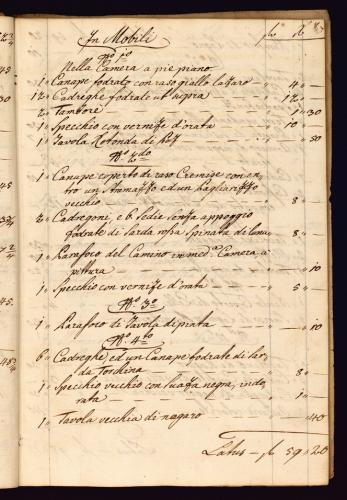 In Mobili
Nella Camera a piè piano
1 Canapè fodrato con raso giallo
12 Cadreghe fodrate ut supra — 12
2 Tamborè — 1 30
1 Specchio con vernise d'orata — 10
1 Tavola Rotonda di — 50
N.o 2.do
1 Canapè coperto di raso Cremise con en
tro un Stramazzo ed un pagliarizzo
vecchio — 8
2 Cadregoni, e 6 Sedie senza appoggio
fodrate di Sarda rossa spinata di lana — 8
1 Parafoco del Camino in med.a Camera a
pittura — 10
1 Specchio con vernise d'orata — 5
N.o 3.o
1 Parafoco di Tavola dipinta — 10
N.o 4.to
6 Cadreghe, ed un Canapè fodrate di Sar
da Torchina — 8
1 Specchio vecchio con suaza negra, indo
rata — 1
1 Tavola vecchia di nogaro — 40
Latus — 59 20